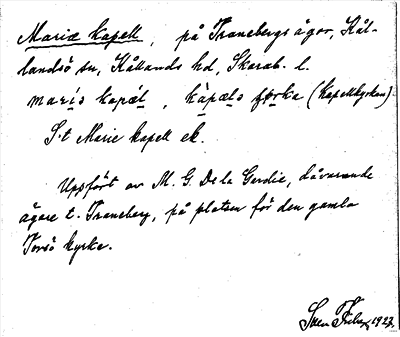 Mariæ Kapell, på Tranebergs ägor, Kål-
landsö sn, Kållands hd, Skarab. l.
marìs kapæ̀l, kàpæls çørka (Kapellkyrkan).
S:t Marie kapell ek.
Uppfört av M. G. De la Gardie, dåvarande
ägare t. Traneberg, på platsen för den gamla
Torsö kyrka.
1927.